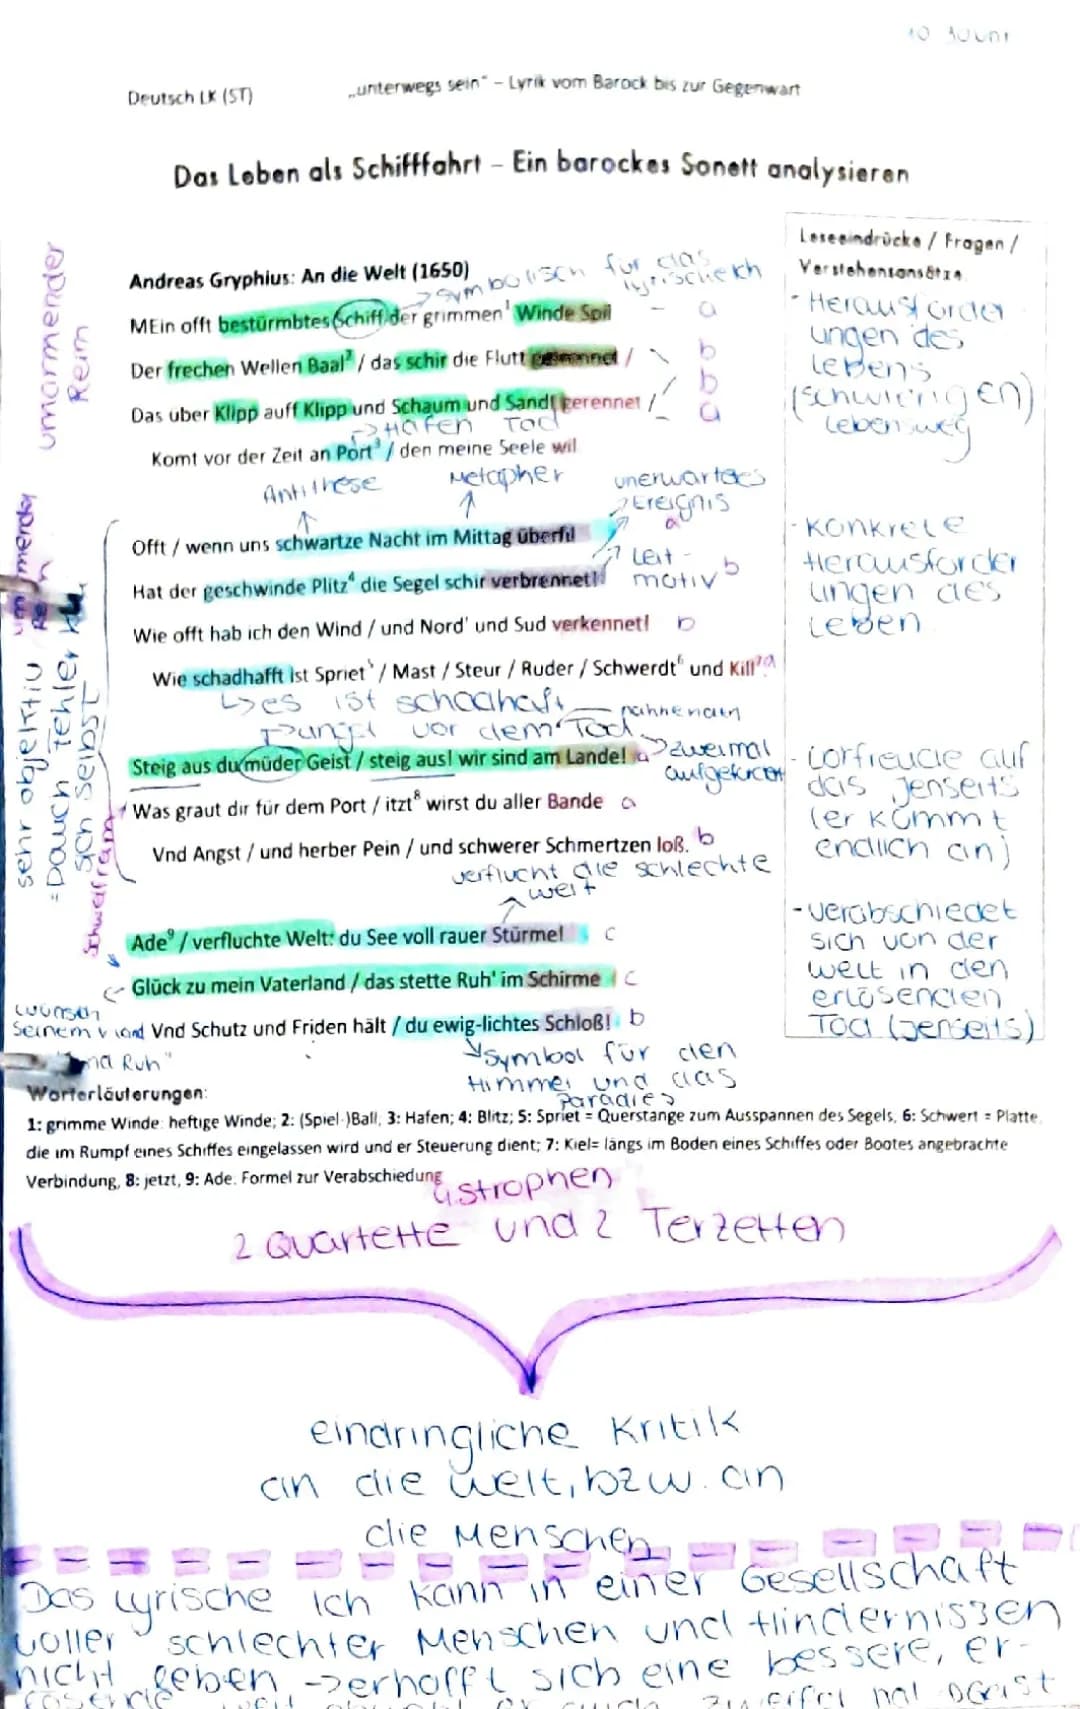 10 Juuni
Deutsch LK (ST)
„unterwegs sein“ – Lyrik vom Barock bis zur Gegenwart
Das Leben als Schifffahrt – Ein barockes Sonett analysieren
Leseeindrücke / Fragen /
Verstehensansätze
Andreas Gryphius: An die Welt (1650)
→ symbolisch für das
lyrische Ich
umarmender
Reim
MEin offt bestürmbtes Schiff der grimmen¹ Winde Spil a
Der frechen Wellen Baal² / das schir die Flutt / b
Das uber Klipp auff Klipp und Schaum und Sandt gerennet / b
→ Hafen Tod a
Komt vor der Zeit an Port³ / den meine Seele wil
- Herausforder
ungen des
Lebens
(schwierigen)
Lebensweg
Antithese
Metapher
unerwartetes
Ereignis
Offt / wenn uns schwartze Nacht im Mittag überfil a
Hat der geschwinde Plitz⁴ die Segel schir verbrennet! b
Leit-
motiv
Wie offt hab ich den Wind / und Nord' und Sud verkennet! b
Wie schadhafft ist Spriet⁵ / Mast / Steur / Ruder / Schwerdt⁶ und Kill⁷ a
- Konkrete
Herausforder
ungen des
Leben
↳ es ist schadhaft
vor dem Tod
sehr objektiv
= Dauch Fehler
sich selbst
Steig aus du müder Geist / steig aus! wir sind am Lande! a
→ zweimal
Was graut dir für dem Port / itzt⁸ wirst du aller Bande a
Vnd Angst / und herber Pein / und schwerer Schmertzen loß. b
Vorfreude auf
das Jenseits
(er kommt
endlich an)
Schweifreim
verflucht die schlechte
Welt
Ade⁹ / verfluchte Welt: du See voll rauer Stürme! c
Glück zu mein Vaterland / das stette Ruh' im Schirme c
Vnd Schutz und Friden hält / du ewig-lichtes Schloß! b
- verabschiedet
sich von der
Welt in den
erlösenden
Tod (Jenseits)
wünsch
Seinem
Ruh"
Symbol für den
Himmel und das
Paradies
Worterläuterungen:
1: grimme Winde: heftige Winde; 2: (Spiel-)Ball; 3: Hafen; 4: Blitz; 5: Spriet = Querstange zum Ausspannen des Segels, 6: Schwert = Platte,
die im Rumpf eines Schiffes eingelassen wird und er Steuerung dient; 7: Kiel= längs im Boden eines Schiffes oder Bootes angebrachte
Verbindung, 8: jetzt, 9: Ade: Formel zur Verabschiedung
4 Strophen
2 Quartette und 2 Terzetten
eindringliche Kritik
an die Welt, bzw. an
die Menschen
Das lyrische Ich kann in einer Gesellschaft
voller schlechter Menschen und Hindernissen
nicht leben → erhofft sich eine bessere, er-